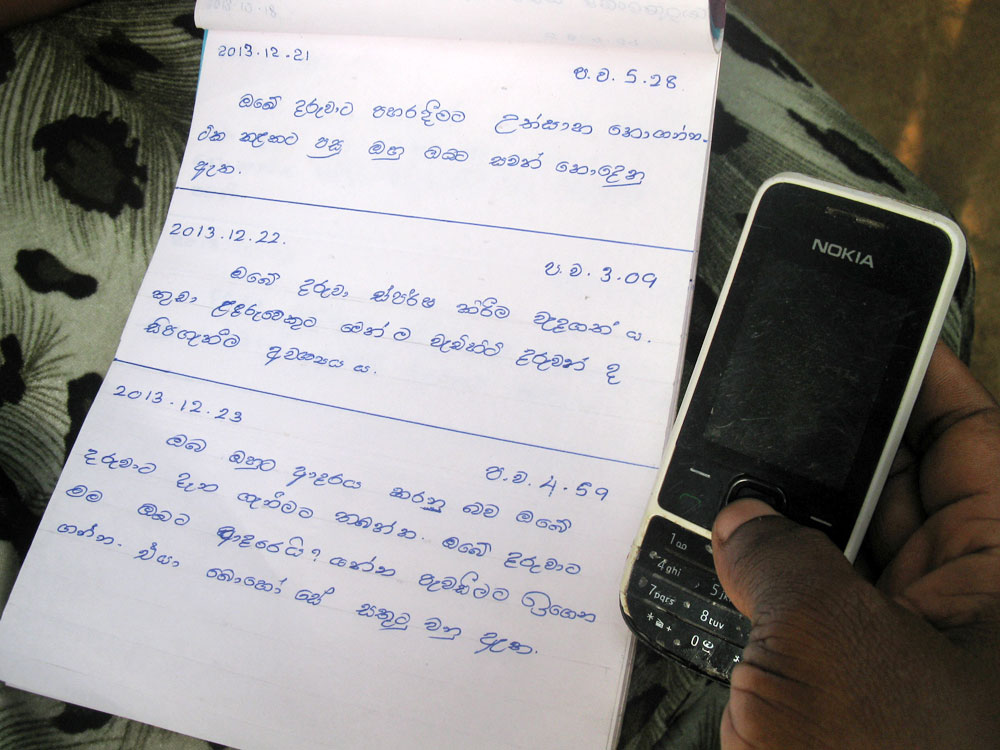 2013.12.21
ප.ව. 5.28
ඔබේ දරුවාට පහරදීමට උත්සාහ නොගන්න.
ටික කලකට පසු ඔහු ඔබට සවන් නොදෙනු
ඇත.
2013.12.22.
ප.ව. 3.09
ඔබේ දරුවා ස්පර්ෂ කිරීම වැදගත් ය.
කුඩා ළදරුවෙකුට මෙන් ම වැඩිහිටි දරුවන් ද
සිපගැනීම අවශ්‍යය ය.
2013.12.23
ප.ව. 4.59
ඔබ ඔහුට ආදරය කරනු බව ඔබේ
දරුවාට දැන ගැනීමට තබන්න. ඔබේ දරුවාට
මම ඔබට ආදරෙයි? යන්න පැවසීමට ඉගෙන
ගන්න. එයා බොහෝ සේ සතුටු වනු ඇත.
NOKIA
1
4ghi
5jkl
7pqrs
8tuv
*
+
0